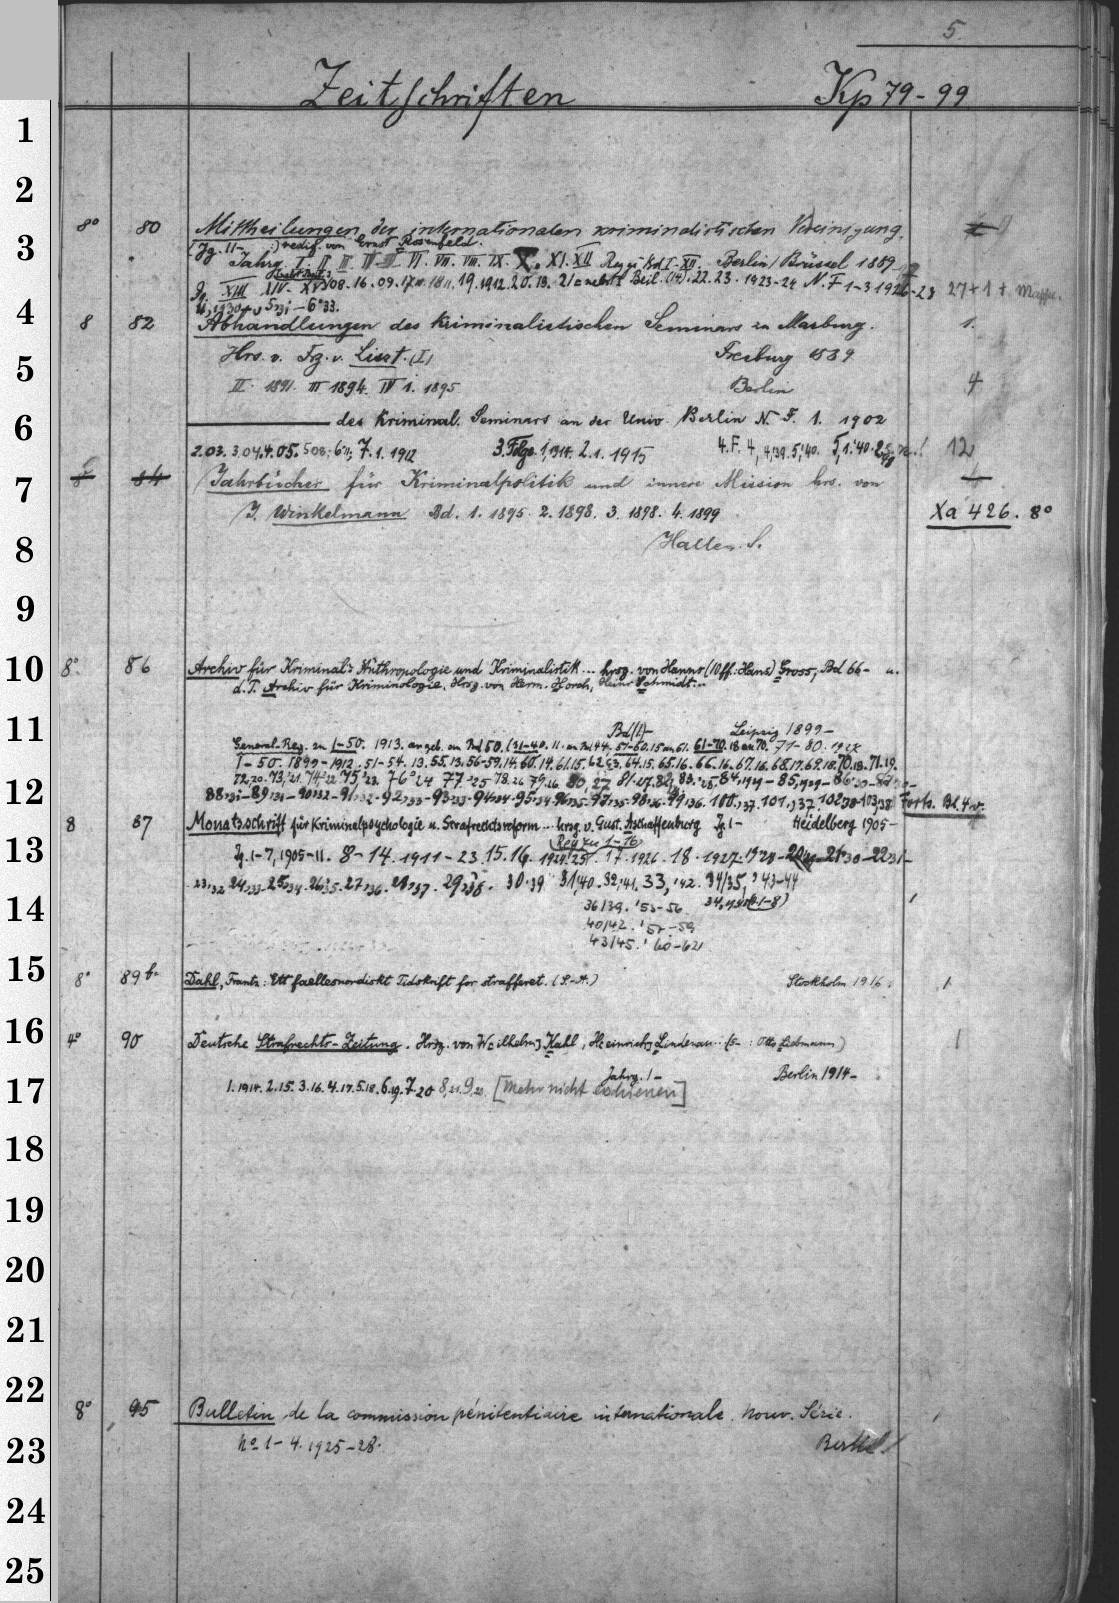 5.
Zeitschriften Kp 79-99
1
2
8° 80 Mittheilungen der internationalen kriminalistischen Vereinigung.
3
(Jg. 11- :) redig. von Ernst Rosenfeld.
Jahrg. I. II. III. IV. VI. VII. VIII. IX. X. XI. XII Berlin/Brüssel 1889
XIII XIV. 08. 16. 09. 17 19. 1912. 20. 13. 21 Beil. (14). 22. 23. 1923-24 N. F 1-3 1926-28 27+1+ Mappe.
4
8 82 Abhandlungen des kriminalistischen Seminars zu Marburg. 1.
5
Hrs. v. Frz. v. Liszt. (I) Freiburg 1889
II. 1891. III 1894. IV 1. 1895 Berlin 4
6
des Kriminal. Seminars an der Univ. Berlin N. F. 1. 1902
2.03. 3.04. 4.05. 7.1. 1912 3. Folge. 1,1914. 2.1. 1915 4. F. 4, 4,'39. 5,'40. 12
7
84 Jahrbücher für Kriminalpolitik und innere Mission hrs. von
J. Winkelmann Bd. 1. 1895. 2. 1898. 3. 1898. 4. 1899 Xa 426. 8°
8
Halle a. S.
9
10
8° 86 Archiv für Kriminal-Anthropologie und Kriminalistik... hrsg. von Hanns (10 ff.: Hans) Gross, Bd 66- u.
d. T. Archiv für Kriminologie. Hrsg. von Herm. Horch, Heinr. Schmidt...
11
Bd (1)- Leipzig 1899-
General-Reg. zu 1-50. 1913. angeb. an Bd 50. (31-40. 11. an Bd 44, 51-60. 15 an 61. 61-70. 18 an 70. 71-80.
1-50. 1899-1912. 51-54. 13. 55. 13. 56-59. 14. 60. 14. 61. 15. 62. 63. 64. 15. 65. 16. 66. 16. 67. 16. 68. 17. 69. 18. 70. 18. 71. 19.
12
72, 20. 73, '21. 74, '22 75, '23. 76, '24 77, '25 78. 26 79. 26 80, 27 81. 27. 82, 83. 84, 1929 - 85, 1929 - 86, 30 -
88,31 - 89,31 - 90,32 - 91,32 - 92,33 - 93,33 - 94,34 - 95,34 - 96,35 - 97,35 - 98,36 - 99,36. 100,37. 101,37. 102,38 - 103,38 Forts. Bl. 4v.
8 87 Monatsschrift für Kriminalpsychologie u. Strafrechtsreform... hrsg. v. Gust. Aschaffenburg Jg. 1- Heidelberg 1905-
13
(Reg. zu 1-16)
Jg. 1-7, 1905-11. 8-14. 1911-23. 15. 16. 1924/25. 17. 1926. 18. 1927. 19,28 - 20,29 - 21,30 - 22,31 -
23,32 24,33 - 25,34 - 26,35. 27,36. 28,37. 29,38. 30,39 31,40. 32,'41. 33,'42. 34/35, '43-44
14
36/39. '53-56 34, (1-8)
40/42. '57-59
43/45. '60-62
15
8° 89b. Dahl, Frantz: Ett faellesnordiskt Tidskrift for strafferet. (S.-A.) Stockholm 1916. 1
16
4° 90 Deutsche Strafrechts-Zeitung. Hrsg. von W[ilhelm] Kahl, H[einrich] Lindenau. (5- : Otto Liebmann) 1
Jahrg. 1- Berlin 1914-
17
1. 1914. 2. 15. 3. 16. 4. 17. 5. 18. 6. 19. 7. 20 8, 21. 9, 22. [Mehr nicht erschienen]
18
19
20
21
22
8° 95 Bulletin de la commission pénitentiaire internationale. Nouv. Série.
23
No 1-4. 1925-28.
24
25